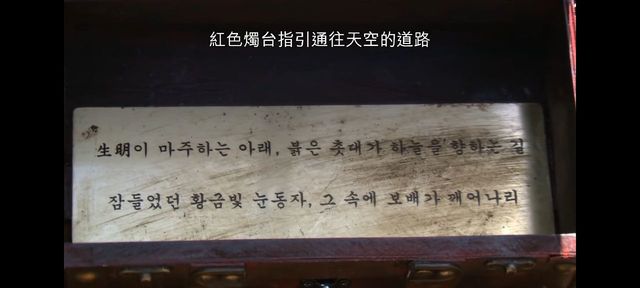 紅色燭台指引通往天空的道路
生明이 마주하는 아래, 붉은 촛대가 하늘을 향하는 길
잠들었던 황금빛 눈동자, 그 속에 보배가 깨어나리